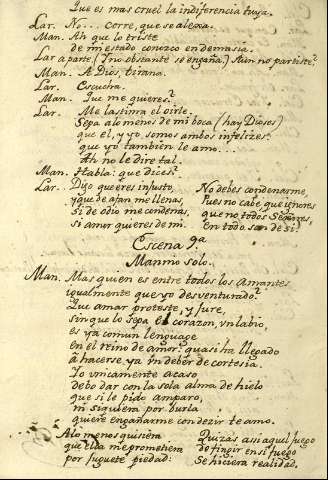 Que es mas cruel la indiferencia tuya.
Lar. No... corre, que se alexa.
Man. Ah que lo triste
de mi estado conozco en demasia.
Lar aparte. (Y no obstante se engaña.) Aun no partiste?
Man. A Dios, tirana.
Lar. Escucha.
Man. Que me quieres?
Lar. Me lastima el oirle.
Sepa alomenos de mi boca (hay Dioses)
que el, y yo somos ambos infelizes:
que yo tambien le amo...
Ah no le dire tal.
Man. Habla: que dices?
Lar.. Digo que eres injusto,
y que de afan me llenas,
Si de odio me condenas,
si amor quieres de mi.
No debes condenarme,
Pues no cabe que ignores
que no todos Señores,
En todo son de si.
Escena 9ª
Manmo solo.
Man. Mas quien es entre todos los Amantes
igualmente que yo desventurado.
Que amar proteste, y jure,
sin que lo sepa el corazon, vn labio,
es ya comun lenguage
En el reino de amor: quasi ha llegado
â hacerse ya vn deber de cortesia.
Yo vnicamente acaso
debo dar con la sola alma de hielo
que si le pido amparo,
ni siquiera por burla
quiere engañarme con dezir te amo.
Alo menos quisiera
que ella me prometiera
por juguete piedad:
Quizas assi aquel fuego
de fingir en si fuego
Se hiciera realidad.